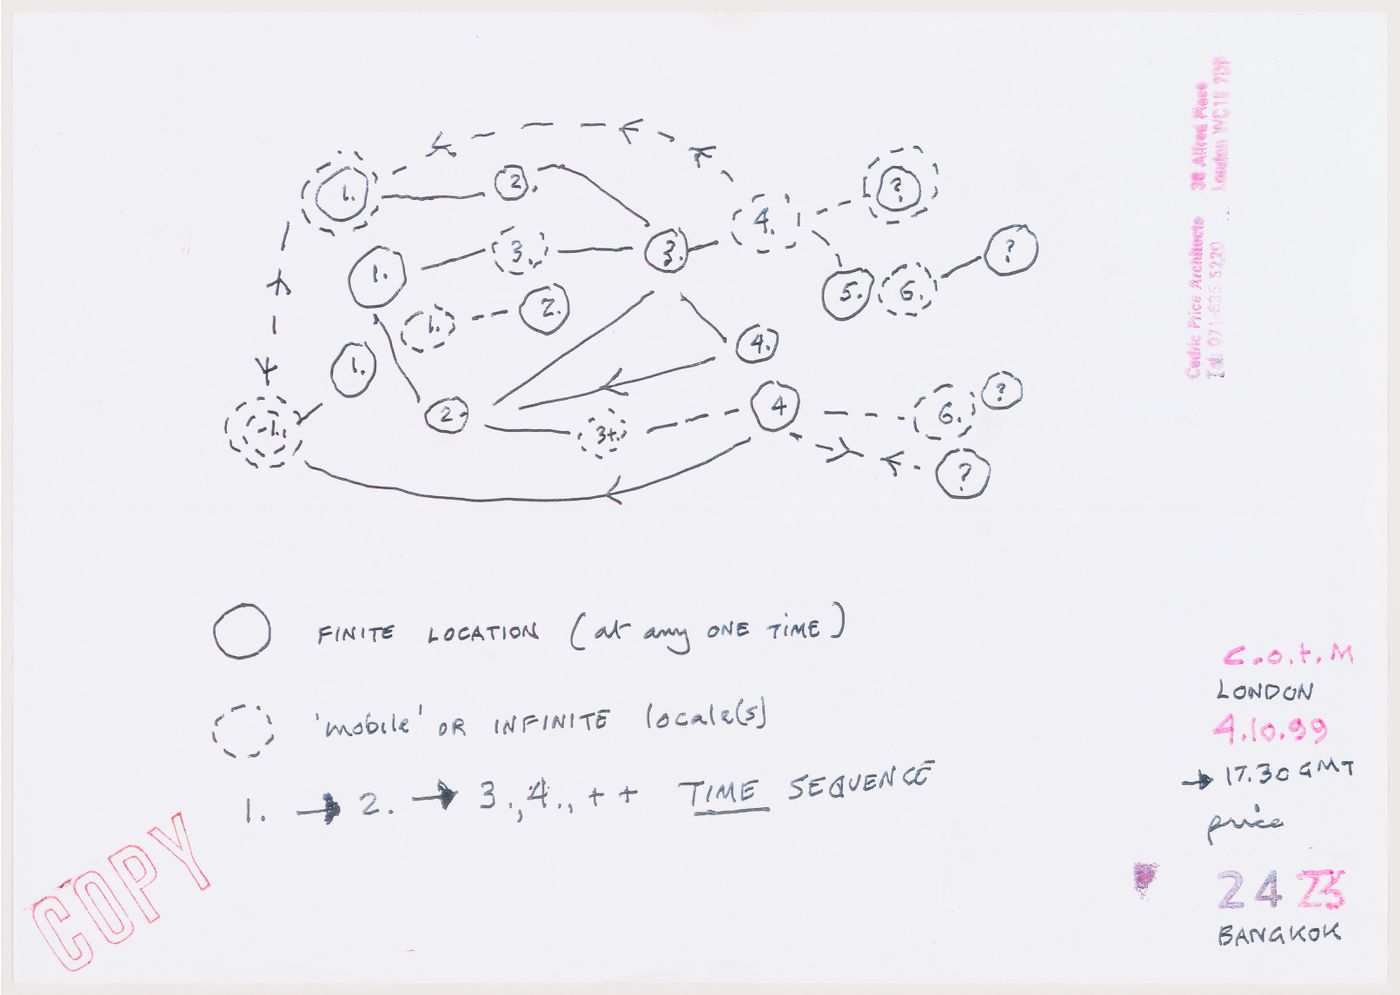 1.
2.
3.
4.
?
1.
3.
5.
6.
?
1.
2.
1.
4.
2.
3+.
4
6.
?
-1.
?
FINITE LOCATION (at any ONE TIME)
'mobile' OR INFINITE locale(s)
1. → 2. → 3., 4., + + TIME SEQUENCE
COPY
Cedric Price Architects 38 Alfred Place
London WC1E 7DP
C.o.t.M
LONDON
4.10.99
→ 17.30 GMT
price
24 23
BANGKOK